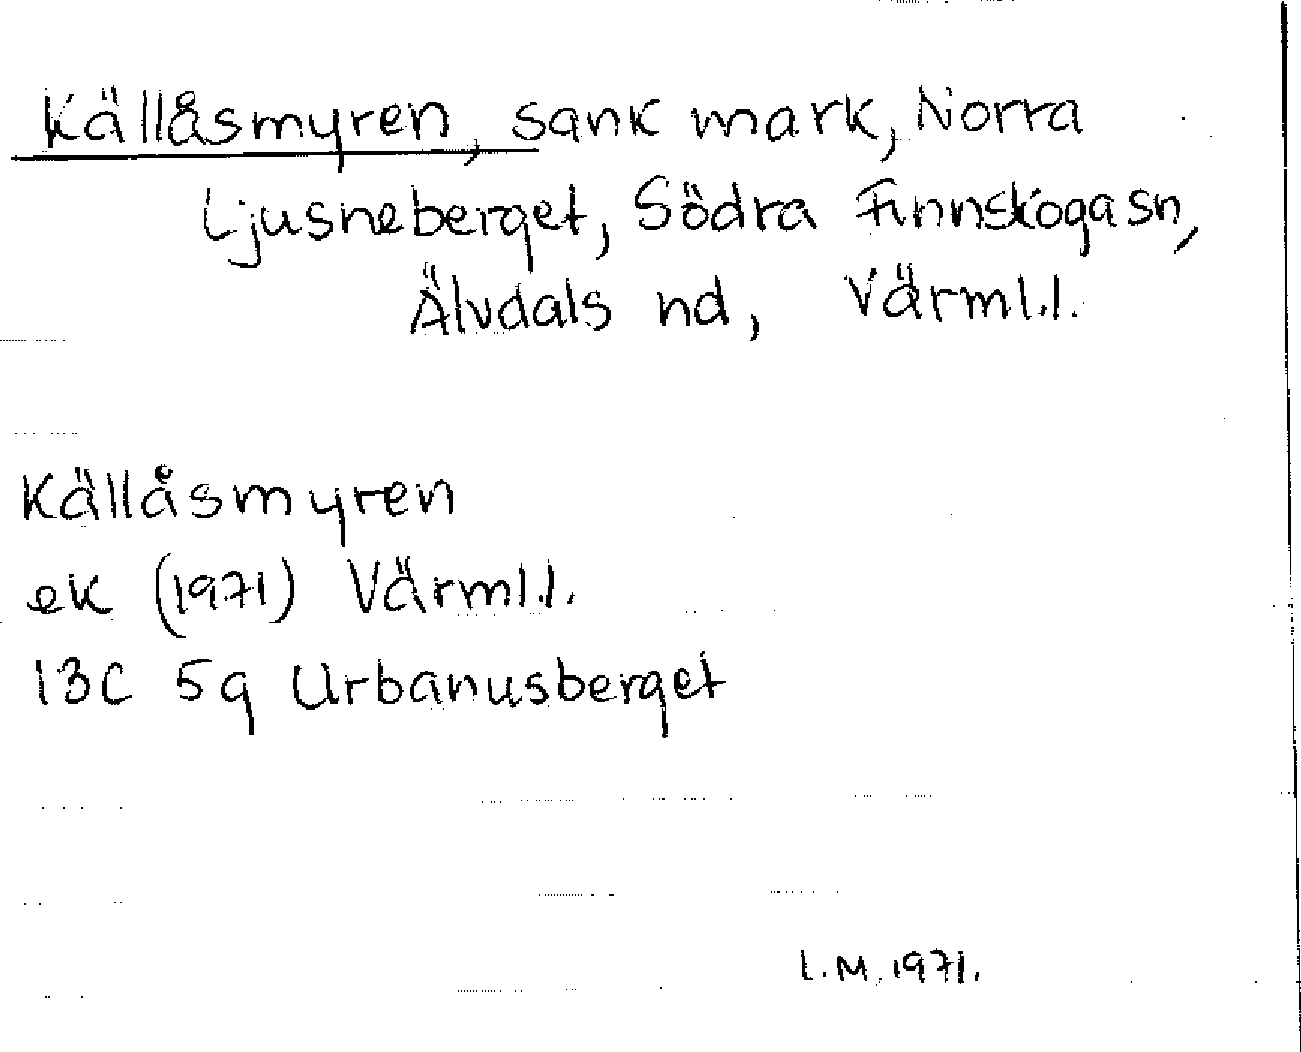 Källåsmyren, sank mark, Norra
Ljusneberget, Södra Finnskoga sn,
Älvdals nd, Värml.l.
Källåsmyren
ek (1971) Värml.l.
13C 5g Urbanusberget
L.M. 1971.